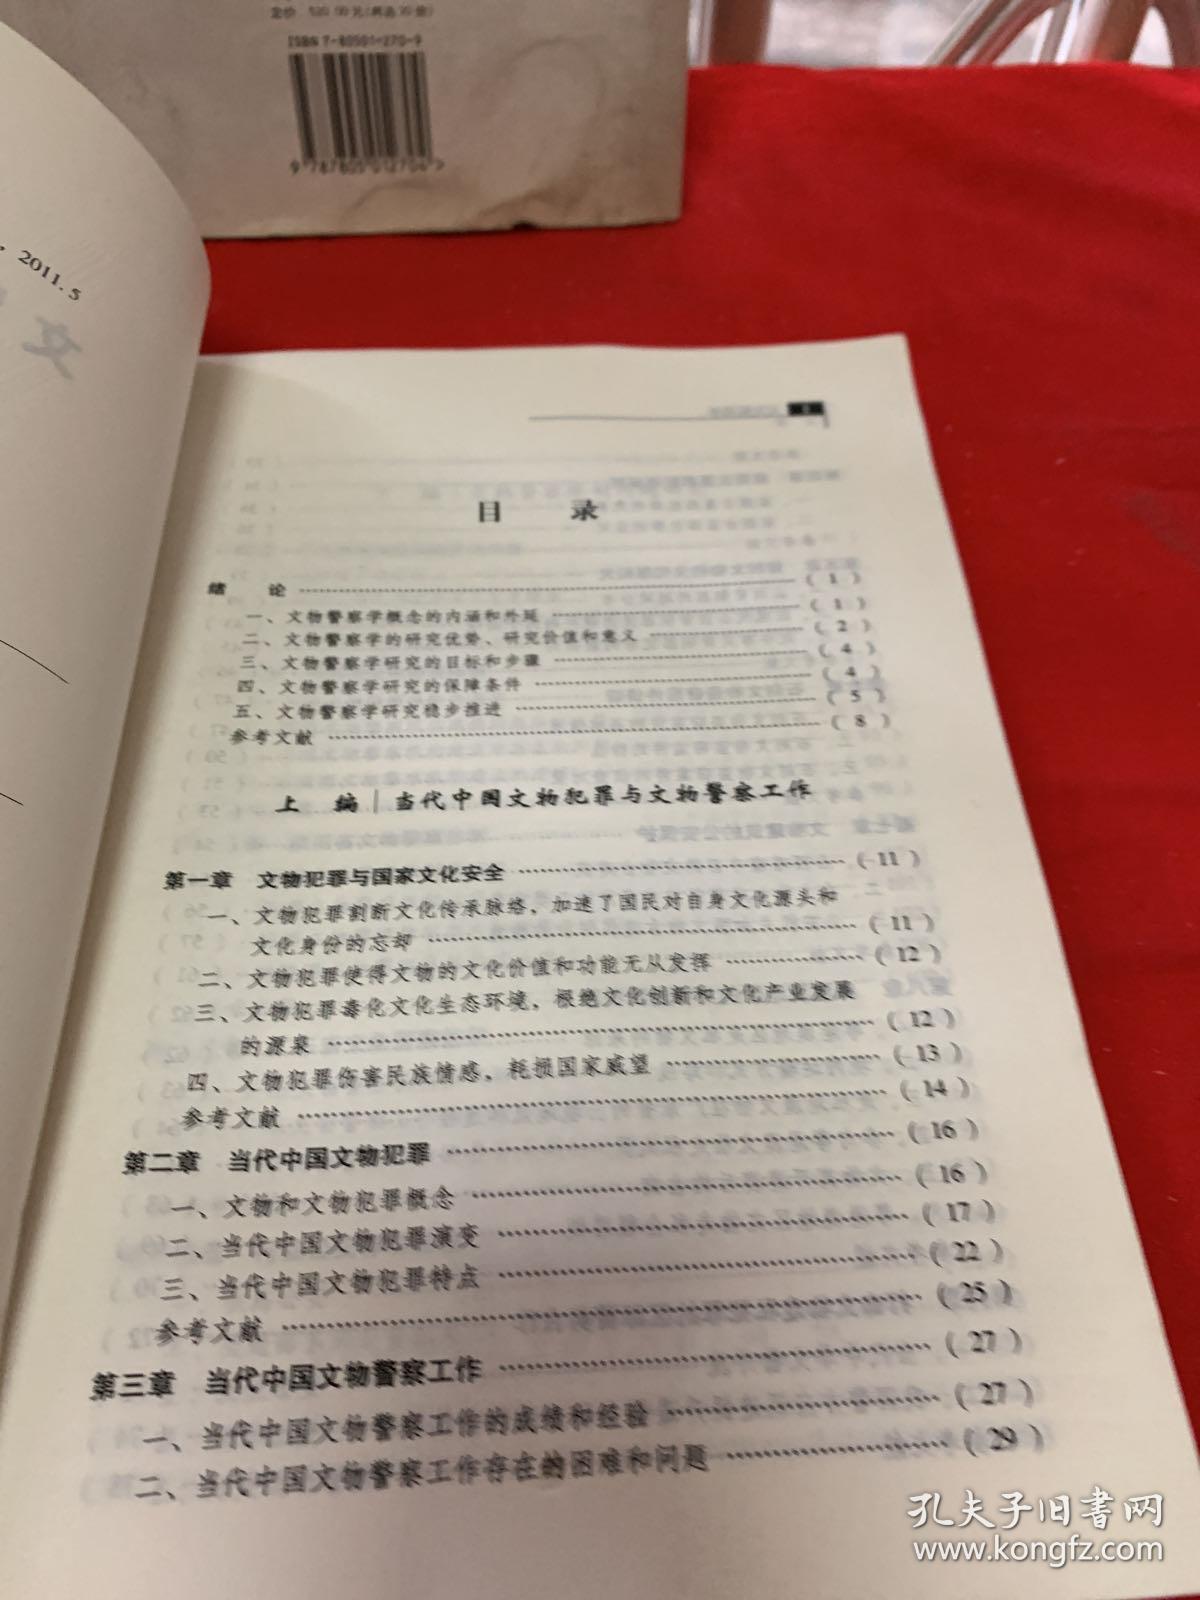 定价 520.00元(
ISBN 7-80501-270-9
9 787805 012704 >
2011.5
文
目 录
绪 论 ………………………………………… ( 1 )
一、文物警察学概念的内涵和外延 ………………………… ( 1 )
二、文物警察学的研究优势、研究价值和意义 ……………… ( 2 )
三、文物警察学研究的目标和步骤 ………………………… ( 4 )
四、文物警察学研究的保障条件 …………………………… ( 4 )
五、文物警察学研究稳步推进 ……………………………… ( 5 )
参考文献 …………………………………………………… ( 8 )
上 编 | 当代中国文物犯罪与文物警察工作
第一章 文物犯罪与国家文化安全 ………………………… ( 11 )
一、文物犯罪割断文化传承脉络，加速了国民对自身文化源头和
文化身份的忘却 ………………………………………… ( 11 )
二、文物犯罪使得文物的文化价值和功能无从发挥 ………… ( 12 )
三、文物犯罪毒化文化生态环境，根绝文化创新和文化产业发展
的源泉 …………………………………………………… ( 12 )
四、文物犯罪伤害民族情感，耗损国家威望 ……………… ( 13 )
参考文献 …………………………………………………… ( 14 )
第二章 当代中国文物犯罪 ………………………………… ( 16 )
一、文物和文物犯罪概念 ………………………………… ( 16 )
二、当代中国文物犯罪演变 ……………………………… ( 17 )
三、当代中国文物犯罪特点 ……………………………… ( 22 )
参考文献 …………………………………………………… ( 25 )
第三章 当代中国文物警察工作 …………………………… ( 27 )
一、当代中国文物警察工作的成绩和经验 ………………… ( 27 )
二、当代中国文物警察工作存在的困难和问题 …………… ( 29 )
孔夫子旧书网
www.kongfz.com